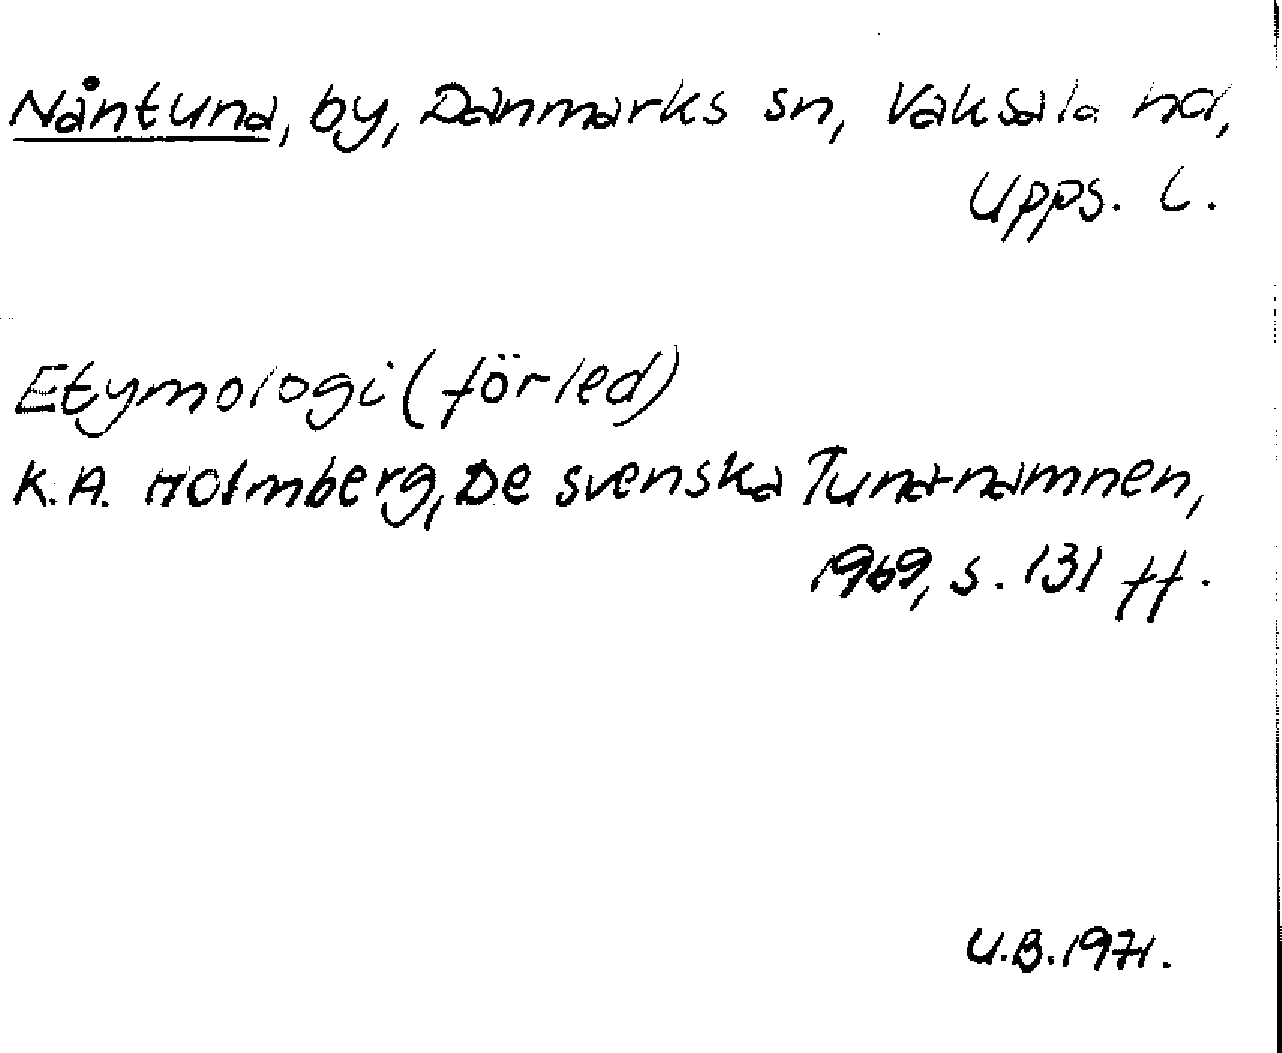 Nåntuna, by, Danmarks sn, Vaksala hd,
Upps. l.
Etymologi (förled)
K.A. Holmberg, De svenska Tuna-namnen,
1969, s. 131 ff.
U.B. 1971.